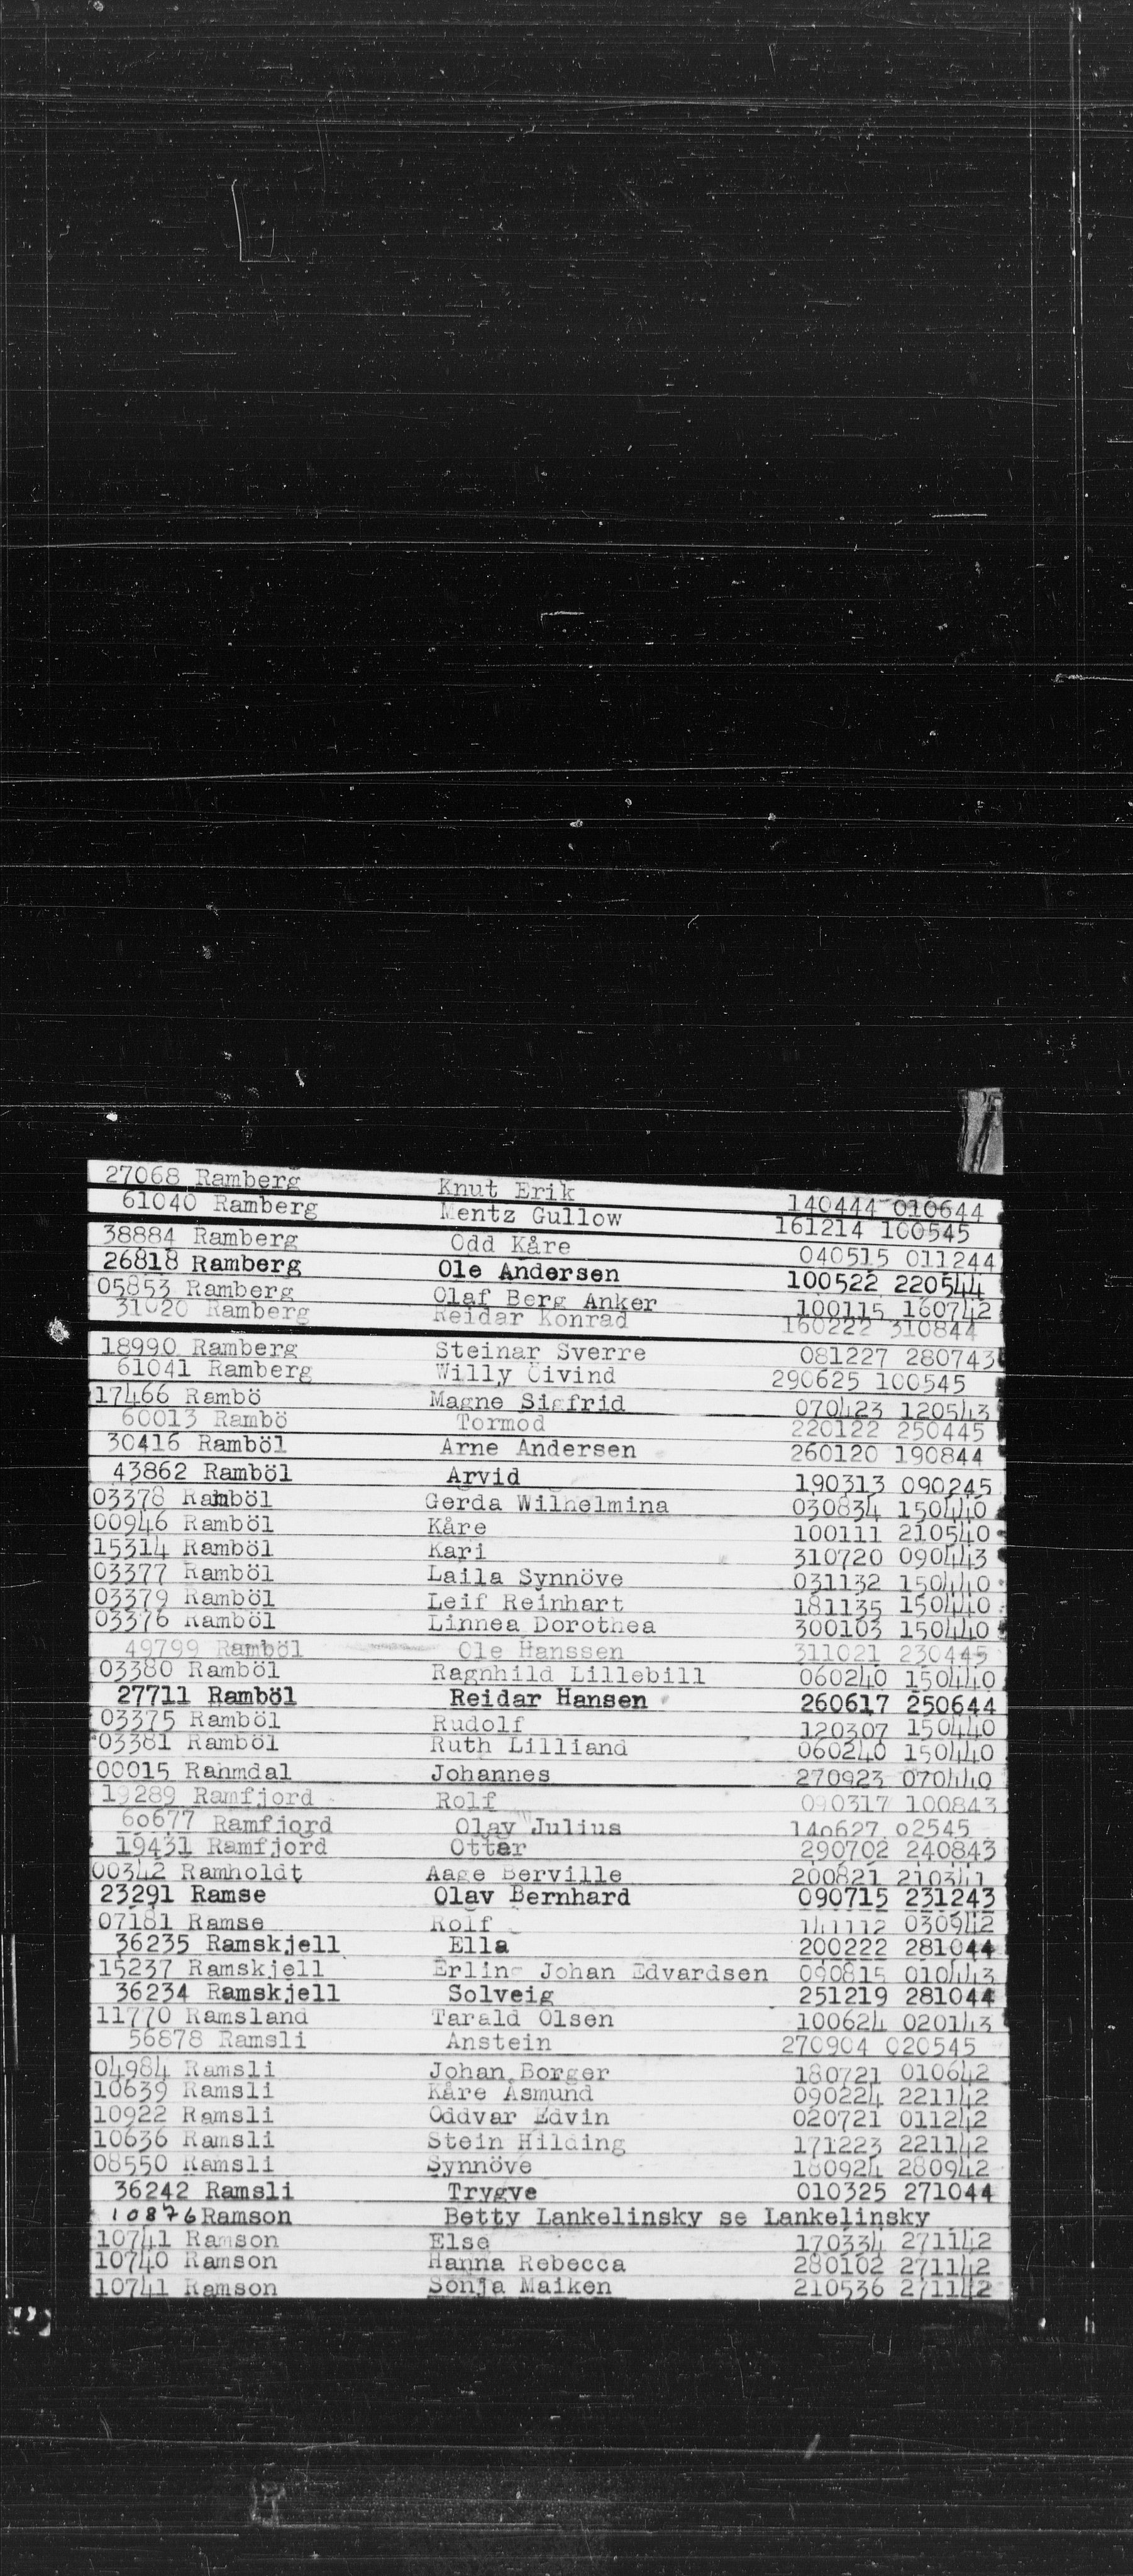 27068 Ramberg Knut Erik 140444 010644
61040 Ramberg Mentz Gullow 161214 100545
38884 Ramberg Odd Kåre 040515 011244
26818 Ramberg Ole Andersen 100522 220544
05853 Ramberg Olaf Berg Anker 100115 160742
31020 Ramberg Reidar Konrad 160222 310844
18990 Ramberg Steinar Sverre 081227 280743
61041 Ramberg Willy Öivind 290625 100545
17466 Rambö Magne Sigfrid 070423 120543
60013 Rambö Tormod 220122 250445
30416 Ramböl Arne Andersen 260120 190844
43862 Ramböl Arvid 190313 090245
03378 Ramböl Gerda Wilhelmina 030834 150440
00946 Ramböl Kåre 100111 210540
15314 Ramböl Kari 310720 090443
03377 Ramböl Laila Synnöve 031132 150440
03379 Ramböl Leif Reinhart 181135 150440
03376 Ramböl Linnea Dorothea 300103 150440
49799 Ramböl Ole Hanssen 311021 230445
03380 Ramböl Ragnhild Lillebill 060240 150440
27711 Ramböl Reidar Hansen 260617 250644
03375 Ramböl Rudolf 120307 150440
03381 Ramböl Ruth Lilliand 060240 150440
00015 Rahmdal Johannes 270923 070440
19289 Ramfjord Rolf 090317 100843
60677 Ramfjord Olav Julius 140627 02545
19431 Ramfjord Ottar 290702 240843
00342 Ramholdt Aage Berville 200821 210341
23291 Ramse Olav Bernhard 090715 231243
07181 Ramse Rolf 141112 030942
36235 Ramskjell Ella 200222 281044
15237 Ramskjell Erling Johan Edvardsen 090815 010443
36234 Ramskjell Solveig 251219 281044
11770 Ramsland Tarald Olsen 100624 020143
56878 Ramsli Anstein 270904 020545
04984 Ramsli Johan Borger 180721 010642
10639 Ramsli Kåre Asmund 090224 221142
10922 Ramsli Oddvar Edvin 020721 011242
10636 Ramsli Stein Hilding 171223 221142
08550 Ramsli Synnöve 180924 280942
36242 Ramsli Trygve 010325 271044
10876 Ramson Betty Lankelinsky se Lankelinsky
10741 Ramson Else 170334 271142
10740 Ramson Hanna Rebecca 280102 271142
10741 Ramson Sonja Maiken 210536 271142